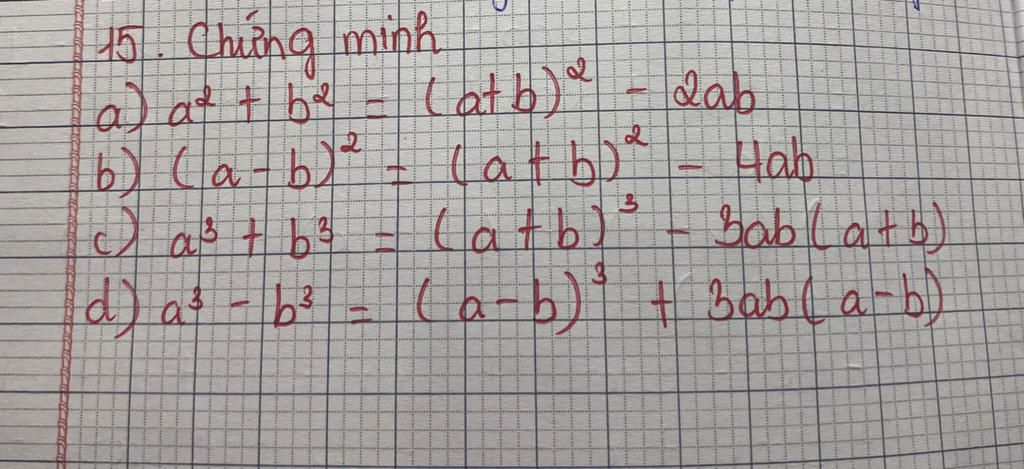 15. Chứng minh
a) a² + b² = (a+b)² - 2ab
b) (a-b)² = (a+b)² - 4ab
c) a³ + b³ = (a+b)³ - 3ab(a+b)
d) a³ - b³ = (a-b)³ + 3ab(a-b)